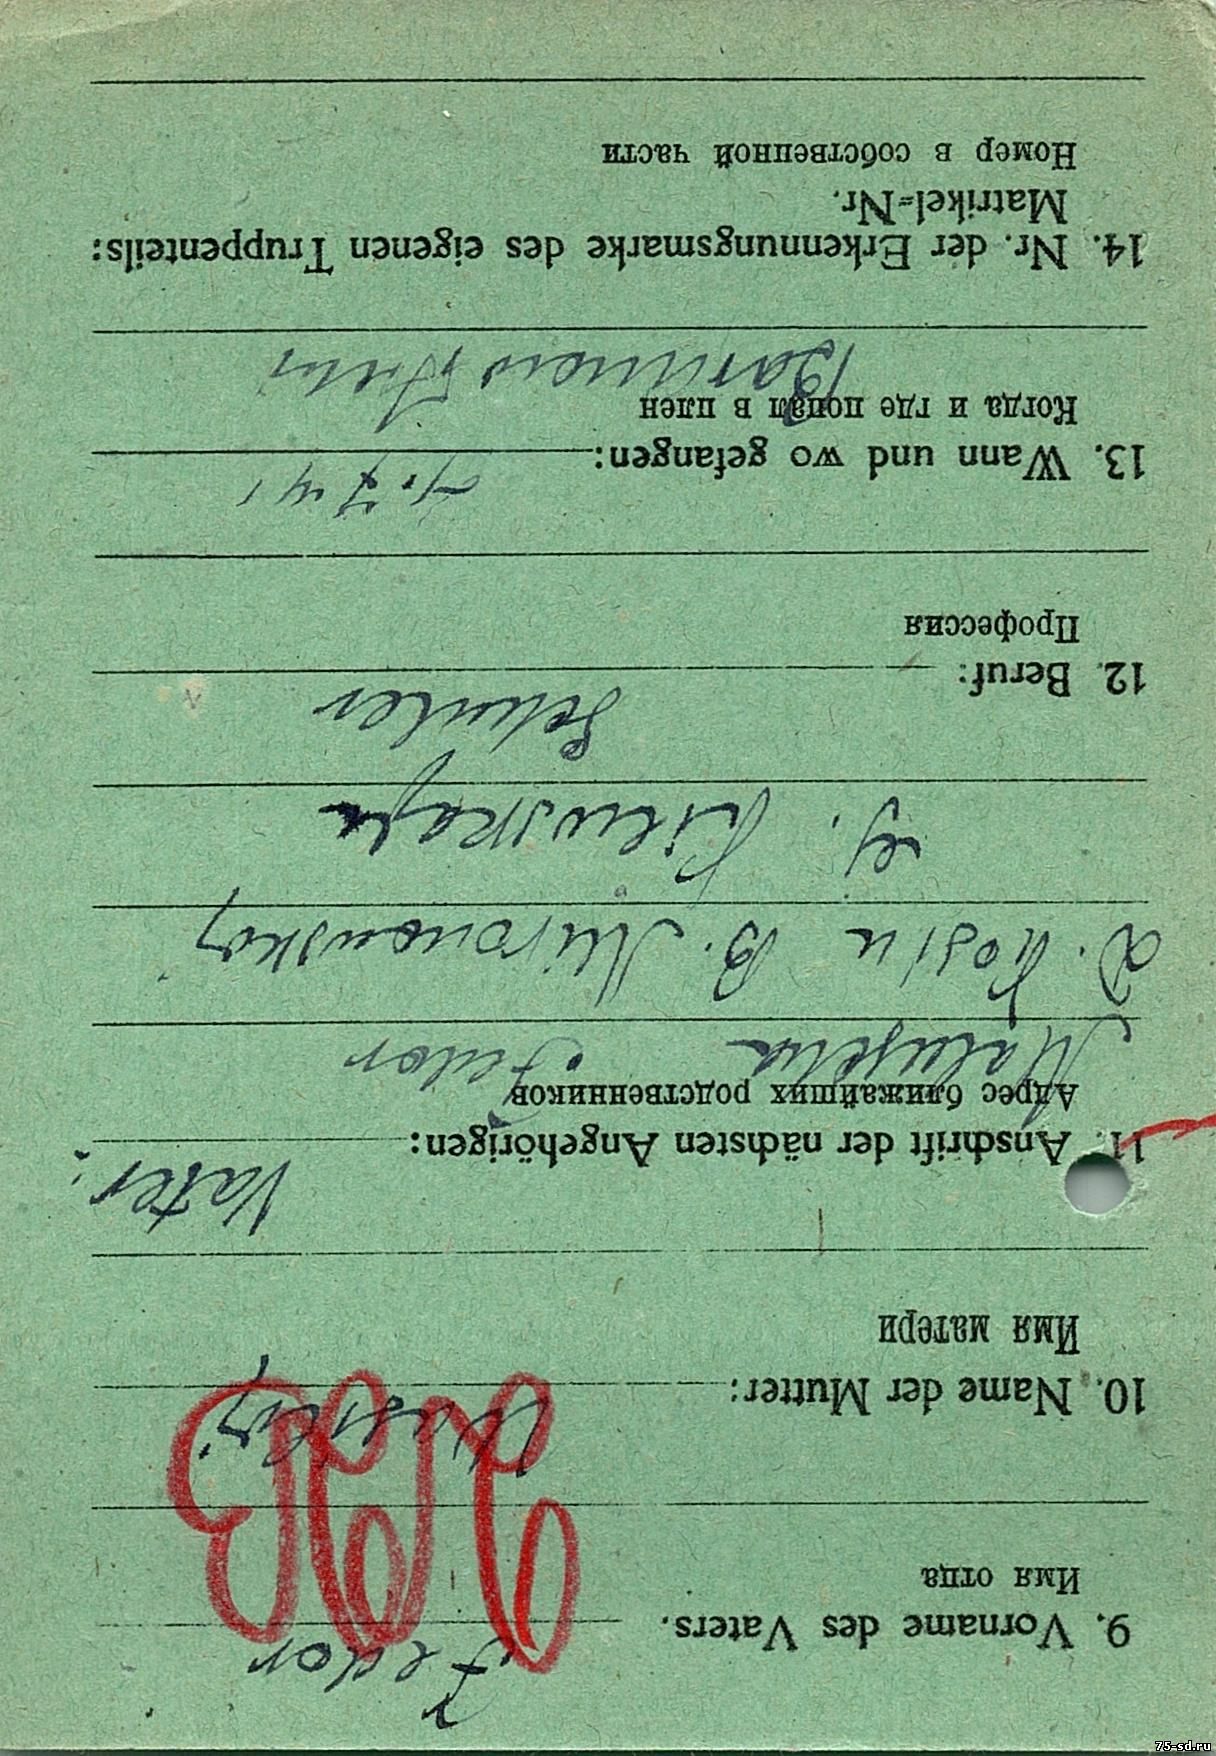 Fedor
9. Vorname des Vaters.
Имя отца
10. Name der Mutter:
Имя матери
Vater:
11. Anschrift der nächsten Angehörigen:
Адрес ближайших родственников
Fedor
D. B. Mironowskoj
Schuler
12. Beruf:
Профессия
7.41
13. Wann und wo gefangen:
Когда и где попал в плен
14. Nr. der Erkennungsmarke des eigenen Truppenteils:
Matrikel=Nr.
Номер в собственной части
75-sd.ru